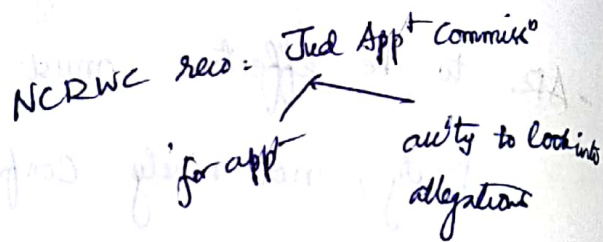 NCRWC reco: Jud Appt Commissn
for appt
auty to look into
allegations